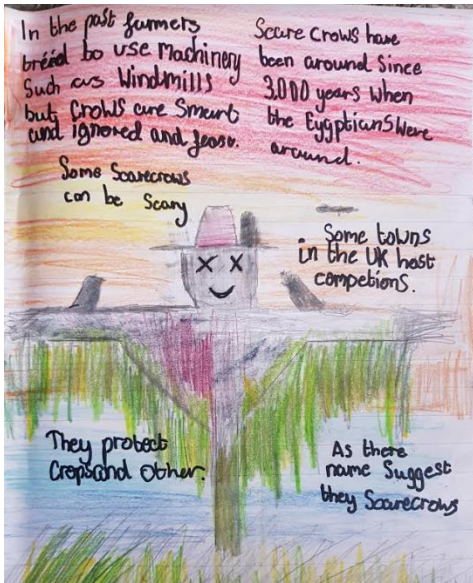 In the past farmers
treied to use Machinery
Such as Windmills
but Crows are Smart
and ignored and feast.
Scare Crows have
been around Since
3,000 years when
the Eygptians were
around.
Some Scarecrows
can be Scary
Some towns
in the UK host
competions.
They protect
Crops and Other.
As there
name Suggest
they Scarecrows